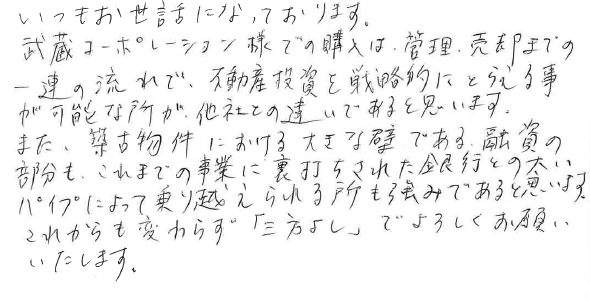 いつもお世話になっております。
武蔵コーポレーション様での購入は、管理、売却までの
一連の流れで、不動産投資を戦略的にとらえる事
が可能な所が、他社との違いであると思います。
また、築古物件における大きな壁である、融資の
部分も、これまでの事業に裏打ちされた銀行との太い
パイプによって乗り越えられる所も強みであると思います。
これからも変わらず「三方よし」でよろしくお願い
いたします。